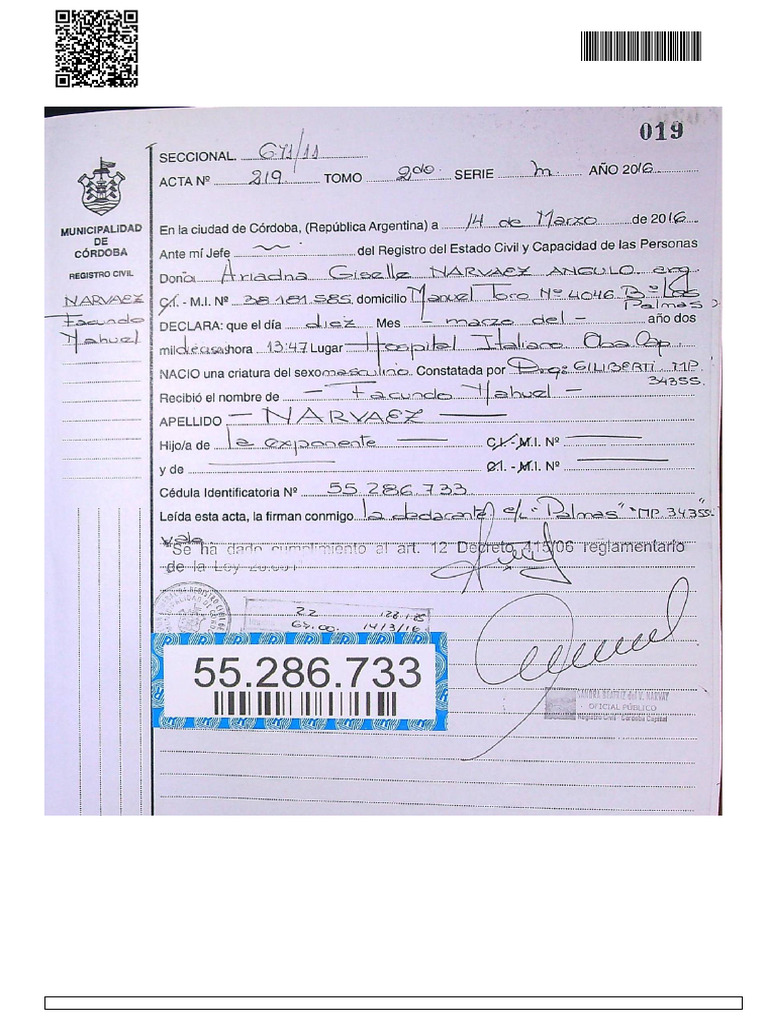 019
SECCIONAL. 671/11
ACTA Nº 219. TOMO 2do. SERIE M. AÑO 2016
MUNICIPALIDAD
DE
CÓRDOBA
REGISTRO CIVIL
NARVAEZ
Facundo
Nahuel
En la ciudad de Córdoba, (República Argentina) a 14 de Marzo de 2016
Ante mí Jefe del Registro del Estado Civil y Capacidad de las Personas
Doña Ariadna Giselle NARVAEZ ANGULO. arg.
C.I. - M.I. Nº 38.181.585. domicilio Manuel Toro Nº 4046. Bº Las Palmas.
DECLARA: que el día diez Mes - marzo del - año dos
mil dieciseis hora 13:47 Lugar Hospital Italiano Cba. Cap.
NACIO una criatura del sexo masculino. Constatada por Dra: GILIBERTI. MP. 34355.
Recibió el nombre de - Facundo Nahuel -
APELLIDO - NARVAEZ
Hijo/a de la exponente C.I. - M.I. Nº
y de C.I. - M.I. Nº
Cédula Identificatoria Nº 55.286.733.
Leída esta acta, la firman conmigo la declarante. e/L: "Palmas" "MP. 34355."
vale.
"Se ha dado cumplimiento al art. 12 Decreto 415/06 reglamentario
de la Ley 26.061
22
14/3/16
55.286.733
OFICIAL PÚBLICO
Registro Civil - Córdoba Capital